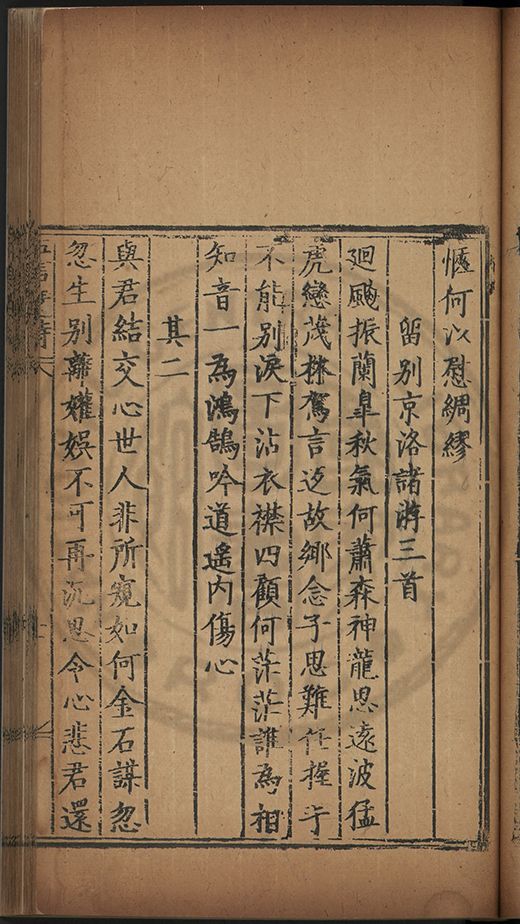 慨何以慰綢繆
留別京洛諸游三首
廻飈振蘭皐秋氣何蕭森神龍思遠波猛
虎戀茂林駕言返故鄉念子思難任握手
不能別淚下沾衣襟四顧何茫茫誰為相
知音一為鴻鵠吟道遙內傷心
其二
與君結交心世人非所窺如何金石謀忽
忽生別離嬿娛不可再沉思令心悲君還